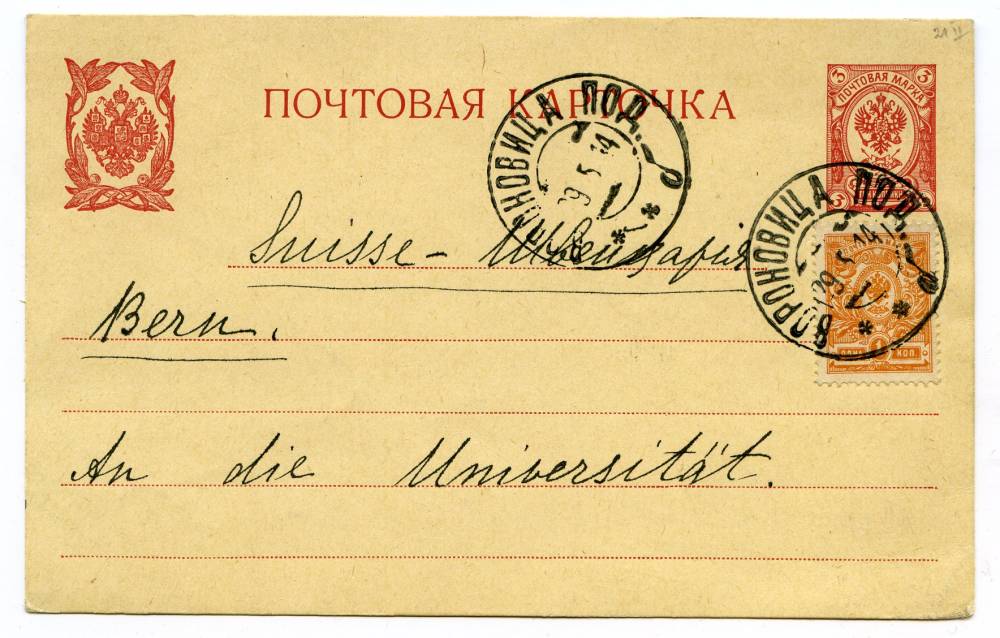 21 II
ПОЧТОВАЯ КАРТОЧКА
3 3
ПОЧТОВАЯ МАРКА
ВОРОНОВИЦА ПОД.
29 5 14
Suisse – Швейцарія
ВОРОНОВИЦА ПОД.
29 5 14
1
КОП.
Bern.
An die Universität.